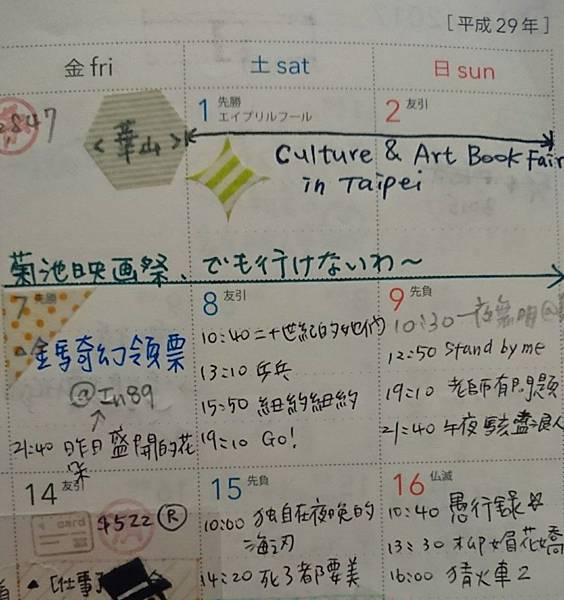 [平成29年]
金 fri 土 sat 日 sun
<華山>
1 先勝
エイプリルフール
2 友引
Culture & Art Book Fair
in Taipei
菊池映画祭、でも行けないわ〜
7 先勝
金馬奇幻領票
@In89
21:40 昨日盛開的花
朵
8 友引
10:40 二十世紀的她們
13:10 乒乓
15:50 紐約紐約
19:10 Go!
9 先負
10:30 一夜無明@
12:50 Stand by me
19:10 老師有問題
21:40 午夜駭盪浪人
14 友引
card 4522 Ⓡ
15 先負
10:00 独自在夜晚的
海边
14:20 死了都要美
16 仏滅
10:40 愚行録
13:30 柳媚花嬌
16:00 猜火車2